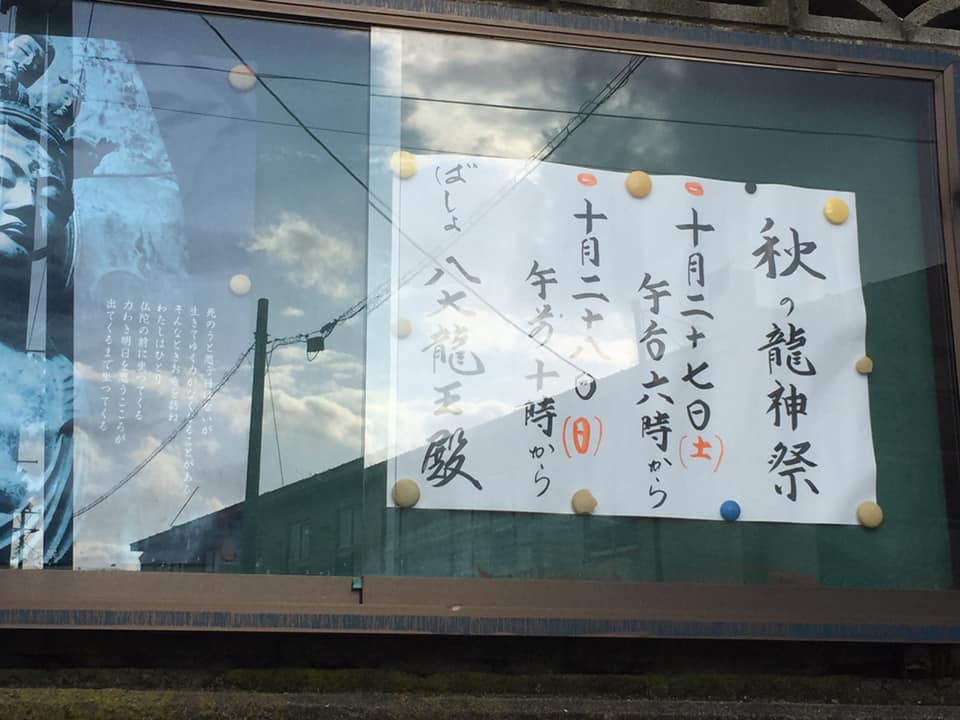 秋の龍神祭
一 十月二十七日(土)
午后六時から
一 十月二十八日(日)
午前十時から
ばしょ 八大龍王殿
死のうと思う日はないが
生きてゆく力がなくなることがある
そんなときお寺を訪ね
わたしはひとり
仏陀の前に坐ってくる
力わき明日を思うこころが
出てくるまで坐ってくる